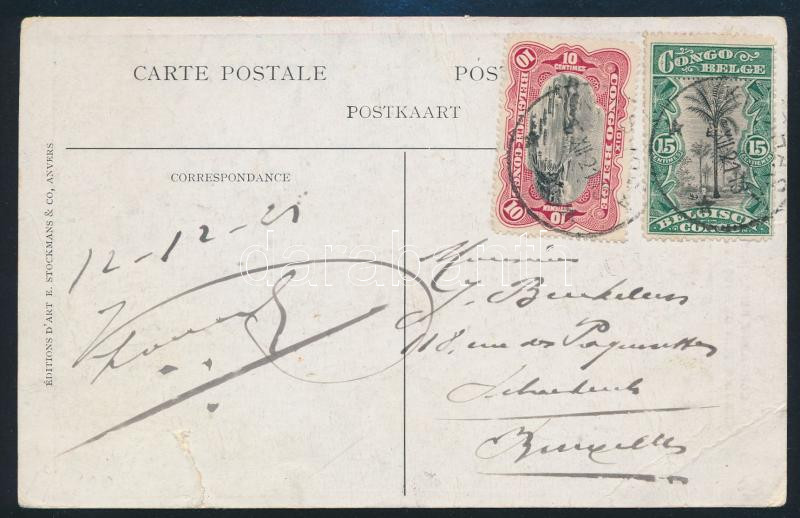 CARTE POSTALE
POS
POSTKAART
CORRESPONDANCE
ÉDITIONS D'ART E. STOCKMANS & CO, ANVERS
12-12-21
Monsieur
J. Beukeleers
118, rue des Paquerettes
Schaerbeek
Bruxelles
10 10
CENTIMES
CONGO BELGE
BELGISCH CONGO
10 10
CONGO
BELGE
15 15
CENTIMES CENTIEMEN
BELGISCH
CONGO
darabanth